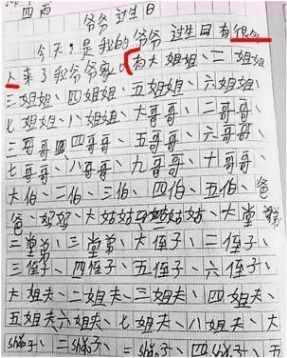 四 雨
爷爷过生日
今天,是我的爷爷过生日有很多
人来了我爷爷家,有大姐姐、二姐姐
三姐姐、四姐姐、五姐姐、六姐姐、
七姐姐、八姐姐、大哥哥、二哥哥、
三哥哥、四哥哥、五哥哥、六哥哥、
七哥哥、八哥哥、九哥哥、十哥哥、
大伯、二伯、三伯、四伯、五伯、爸
爸、妈妈、大姑姑、姑姑、大堂弟
三堂弟、三堂弟、大侄子、二侄子、
三侄子、四侄子、五侄子、六侄子、
大姐夫、二姐夫、三姐夫、四姐夫、
五姐夫六姐夫、七姐夫、八姐夫、大